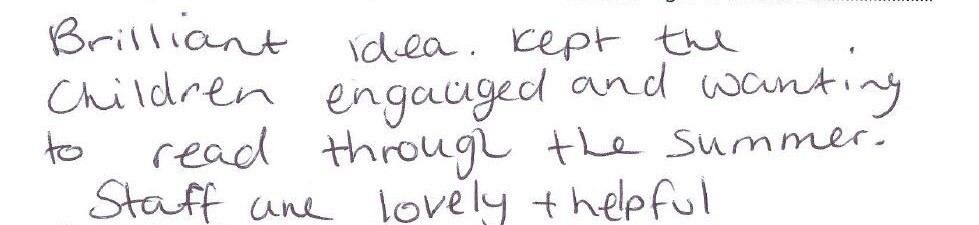 Brilliant idea. Kept the
Children engauged and wanting
to read through the summer.
Staff are lovely + helpful